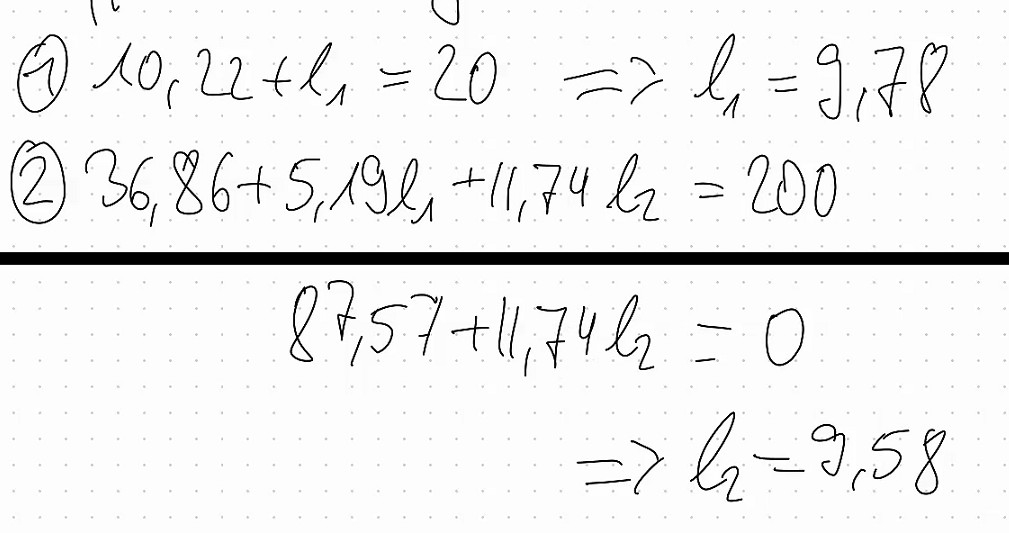 ① 10,22 + l₁ = 20 => l₁ = 9,78
② 36,86 + 5,19l₁ + 11,74 l₂ = 200
87,57 + 11,74 l₂ = 0
=> l₂ = 9,58